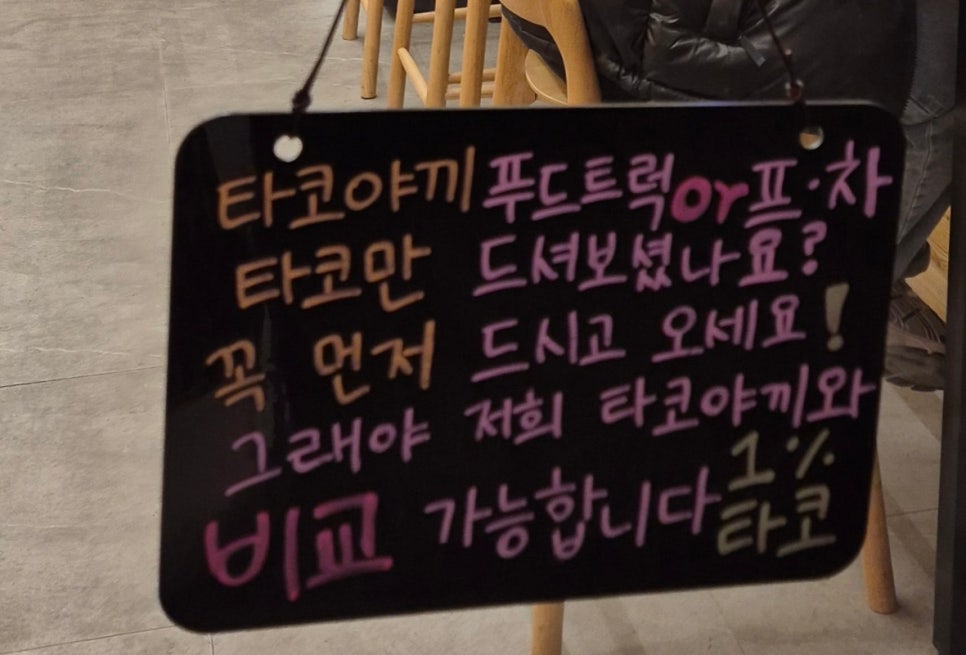 타코야끼 푸드트럭or프·차
타코만 드셔보셨나요?
꼭 먼저 드시고 오세요!
그래야 저희 타코야끼와
비교 가능합니다 1%
타코